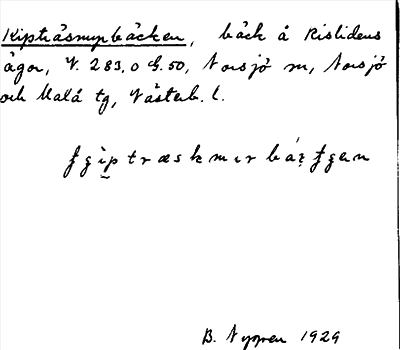 Kipträsmyrbäcken, bäck å Rislidens
ägor, V. 283, O G. 50, Norsjö sn, Norsjö
och Malå tg, Västerb. l.
B. Nygren 1929